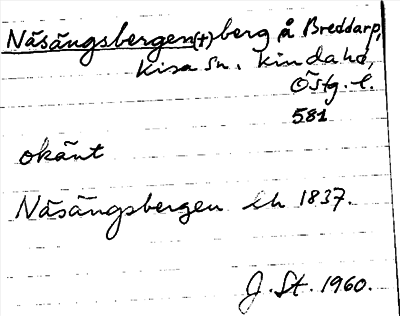 Näsängsbergen(†) berg å Breddarp,
Kisa sn. Kinda hd,
Östg. l.
581
okänt
Näsängsbergen lh 1837.
J. St. 1960.